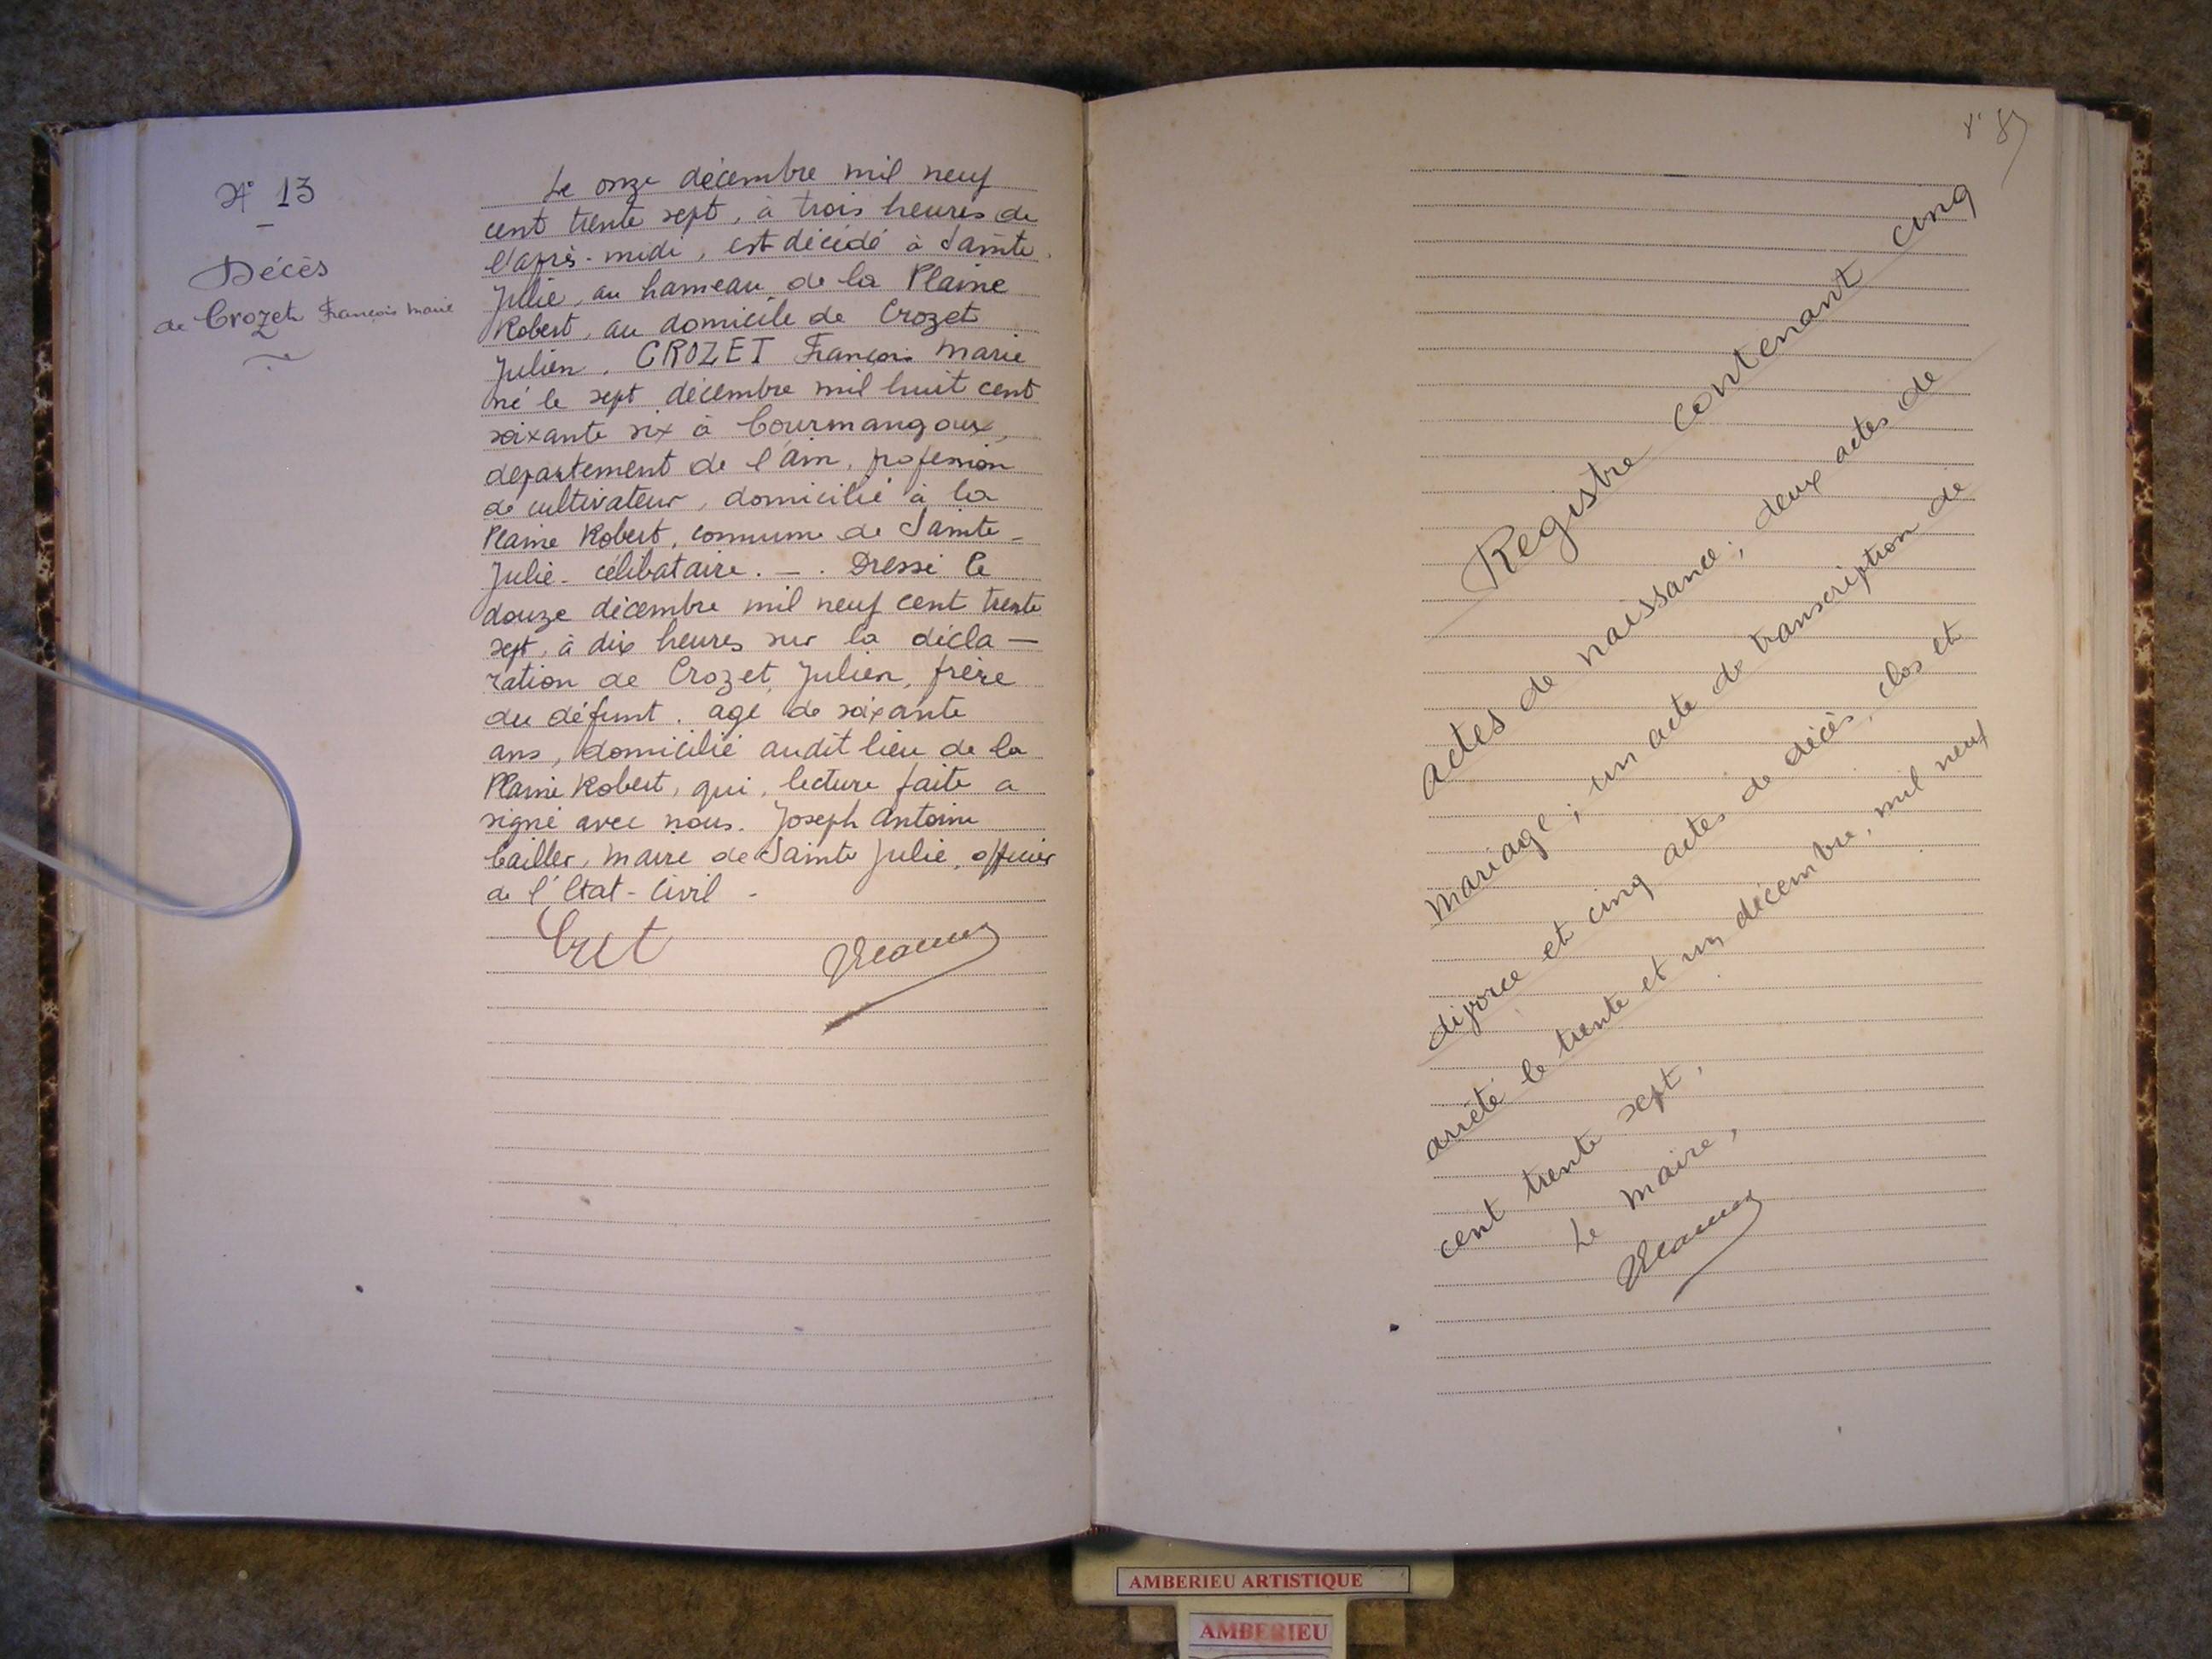 N° 13
Décès
de Crozet François Marie
Le onze décembre mil neuf
cent trente sept, à trois heures de
l'après-midi, est décédé à Sainte
Julie, au hameau de la Plaine
Robert, au domicile de Crozet
Julien, CROZET François Marie
né le sept décembre mil huit cent
soixante six à Courmangoux,
département de l'Ain, profession
de cultivateur, domicilié à la
Plaine Robert, commune de Sainte-
Julie - célibataire. - . Dressé le
douze décembre mil neuf cent trente
sept, à dix heures sur la décla-
ration de Crozet, Julien, frère
du défunt. agé de soixante
ans, domicilié audit lieu de la
Plaine Robert, qui, lecture faite a
signé avec nous. Joseph Antoine
maire de Sainte Julie, officier
de l'Etat-Civil -
Registre contenant cinq
actes de naissance; deux actes de
mariage; un acte de transcription de
divorce et cinq actes de décès, clos et
arrêté le trente et un décembre, mil neuf
cent trente sept,
Le Maire,
AMBERIEU ARTISTIQUE
AMBERIEU